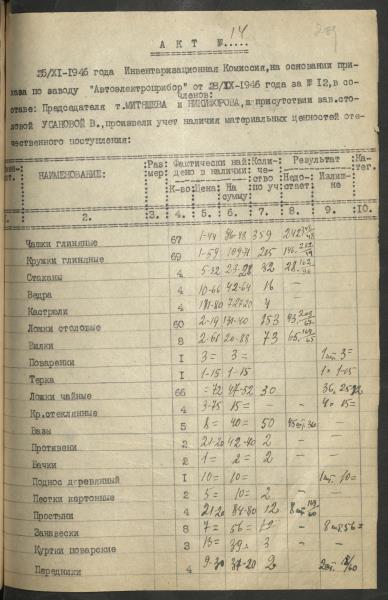 А К Т № 14
25/XI-1946 года Инвентаризационная Комиссия, на основании при-
каза по заводу "Автоэлектроприбор" от 28/IX-1946 года за № 12, в со-
членов:
ставе: Председателя т. МИТЯШЕВА и НИКИФОРОВА, в присутствии зав.сто-
ловой УСАНОВОЙ В., произвели учет наличия материальных ценностей оте-
чественного поступления:
НАИМЕНОВАНИЕ: Раз мер: Фактически най дено в наличии: Коли- че- ство по уч: Результат Ка- тег.
К-во: Цена: На сумму: Недо- стает: Излиш- не
2. 3. 4. 5. 6. 7. 8. 9. 10.
Чашки глиняные 67 1-44 96-48 359
Кружки глиняные 69 1-59 109-71 215
Стаканы 4 5-82 23-28 32
Ведра 4 10-66 42-64 16 —
Кастрюли 4 181-80 727-20 4
Ложки столовые 60 2-19 131-40 153
Вилки 8 2-61 20-88 73
Поваренки 1 3= 3= — 1 шт 3=
Терка 1 1-15 1-15 — 1= 1-15
Ложки чайные 66 =72 47-52 30 36,
Кр.стеклянные 4 3-75 15= — — 4= 15=
Вазы 5 8= 40= 50
Противени 2 21-20 42-40 2
Бачки 2 1= 2= 2 —
Поднос деревянный 1 10= 10= — 1 шт. 10=
Пестки картонные 2 5= 10= 2 —
Простыни 4 21-20 84-80 12
Занавески 8 7= 56= — 8 шт 56=
Куртки поварские 3 13= 39= 3 —
Передники 4 9-30 37-20 2